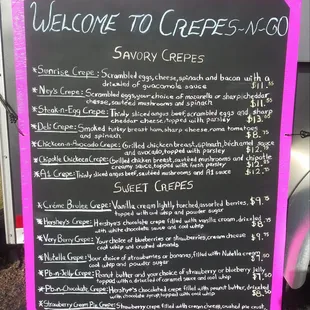 WELCOME TO CREPES-N-GO
SAVORY CREPES
*Sunrise Crepe: Scrambled eggs, cheese, spinach and bacon with a
drizzled of guacamole sauce $11.55
*Ney's Crepe: Scrambled eggs, your choice of mozzarella or sharp cheddar
cheese, sautéed mushrooms and spinach $11.
*Steak-n-Egg Crepe: Thinly sliced angus beef, scrambled eggs and sharp
cheddar cheese, topped with parsley $13.
*Deli Crepe: Smoked turkey breast, ham, sharp cheese, roma tomatoes
and spinach $8.75
*Chicken-n-Avocado Crepe: Grilled chicken breast, spinach, béchamel sauce
and avocado, topped with parsley $12.
*Chipotle Chicken Crepe: Grilled chicken breast, sautéed mushrooms and chipotle
creamy sauce, topped with fresh parsley $12.
*A1 Crepe: Thinly sliced angus beef, sautéed mushrooms and A1 sauce $12.
SWEET CREPES
*Crème Brulee Crepe: Vanilla cream lightly torched, assorted berries,
topped with and whip and powder sugar $9.75
*Hershey's Crepe: Hershey's chocolate crepe filled with vanilla cream, drizzled
with white chocolate sauce and cool whip $8.
*Very Berry Crepe: Your choice of blueberries or strawberries, cream cheese
and cool whip $9.75
*Nutella Crepe: Your choice of strawberries or bananas, filled with Nutella cream
cool whip and powder sugar $9.50
*Pb-n-Jelly Crepe: Peanut butter and your choice of strawberry or blueberry jelly
topped with a drizzled of caramel sauce and cool whip $7.50
*Pb-n-Chocolate Crepe: Hershey's chocolate crepe filled with peanut butter, drizzled
chocolate syrup, topped with cool whip $8.50
*Strawberry Cream Pie Crepe: Strawberry crepe filled with cream cheese, crushed pie crust,